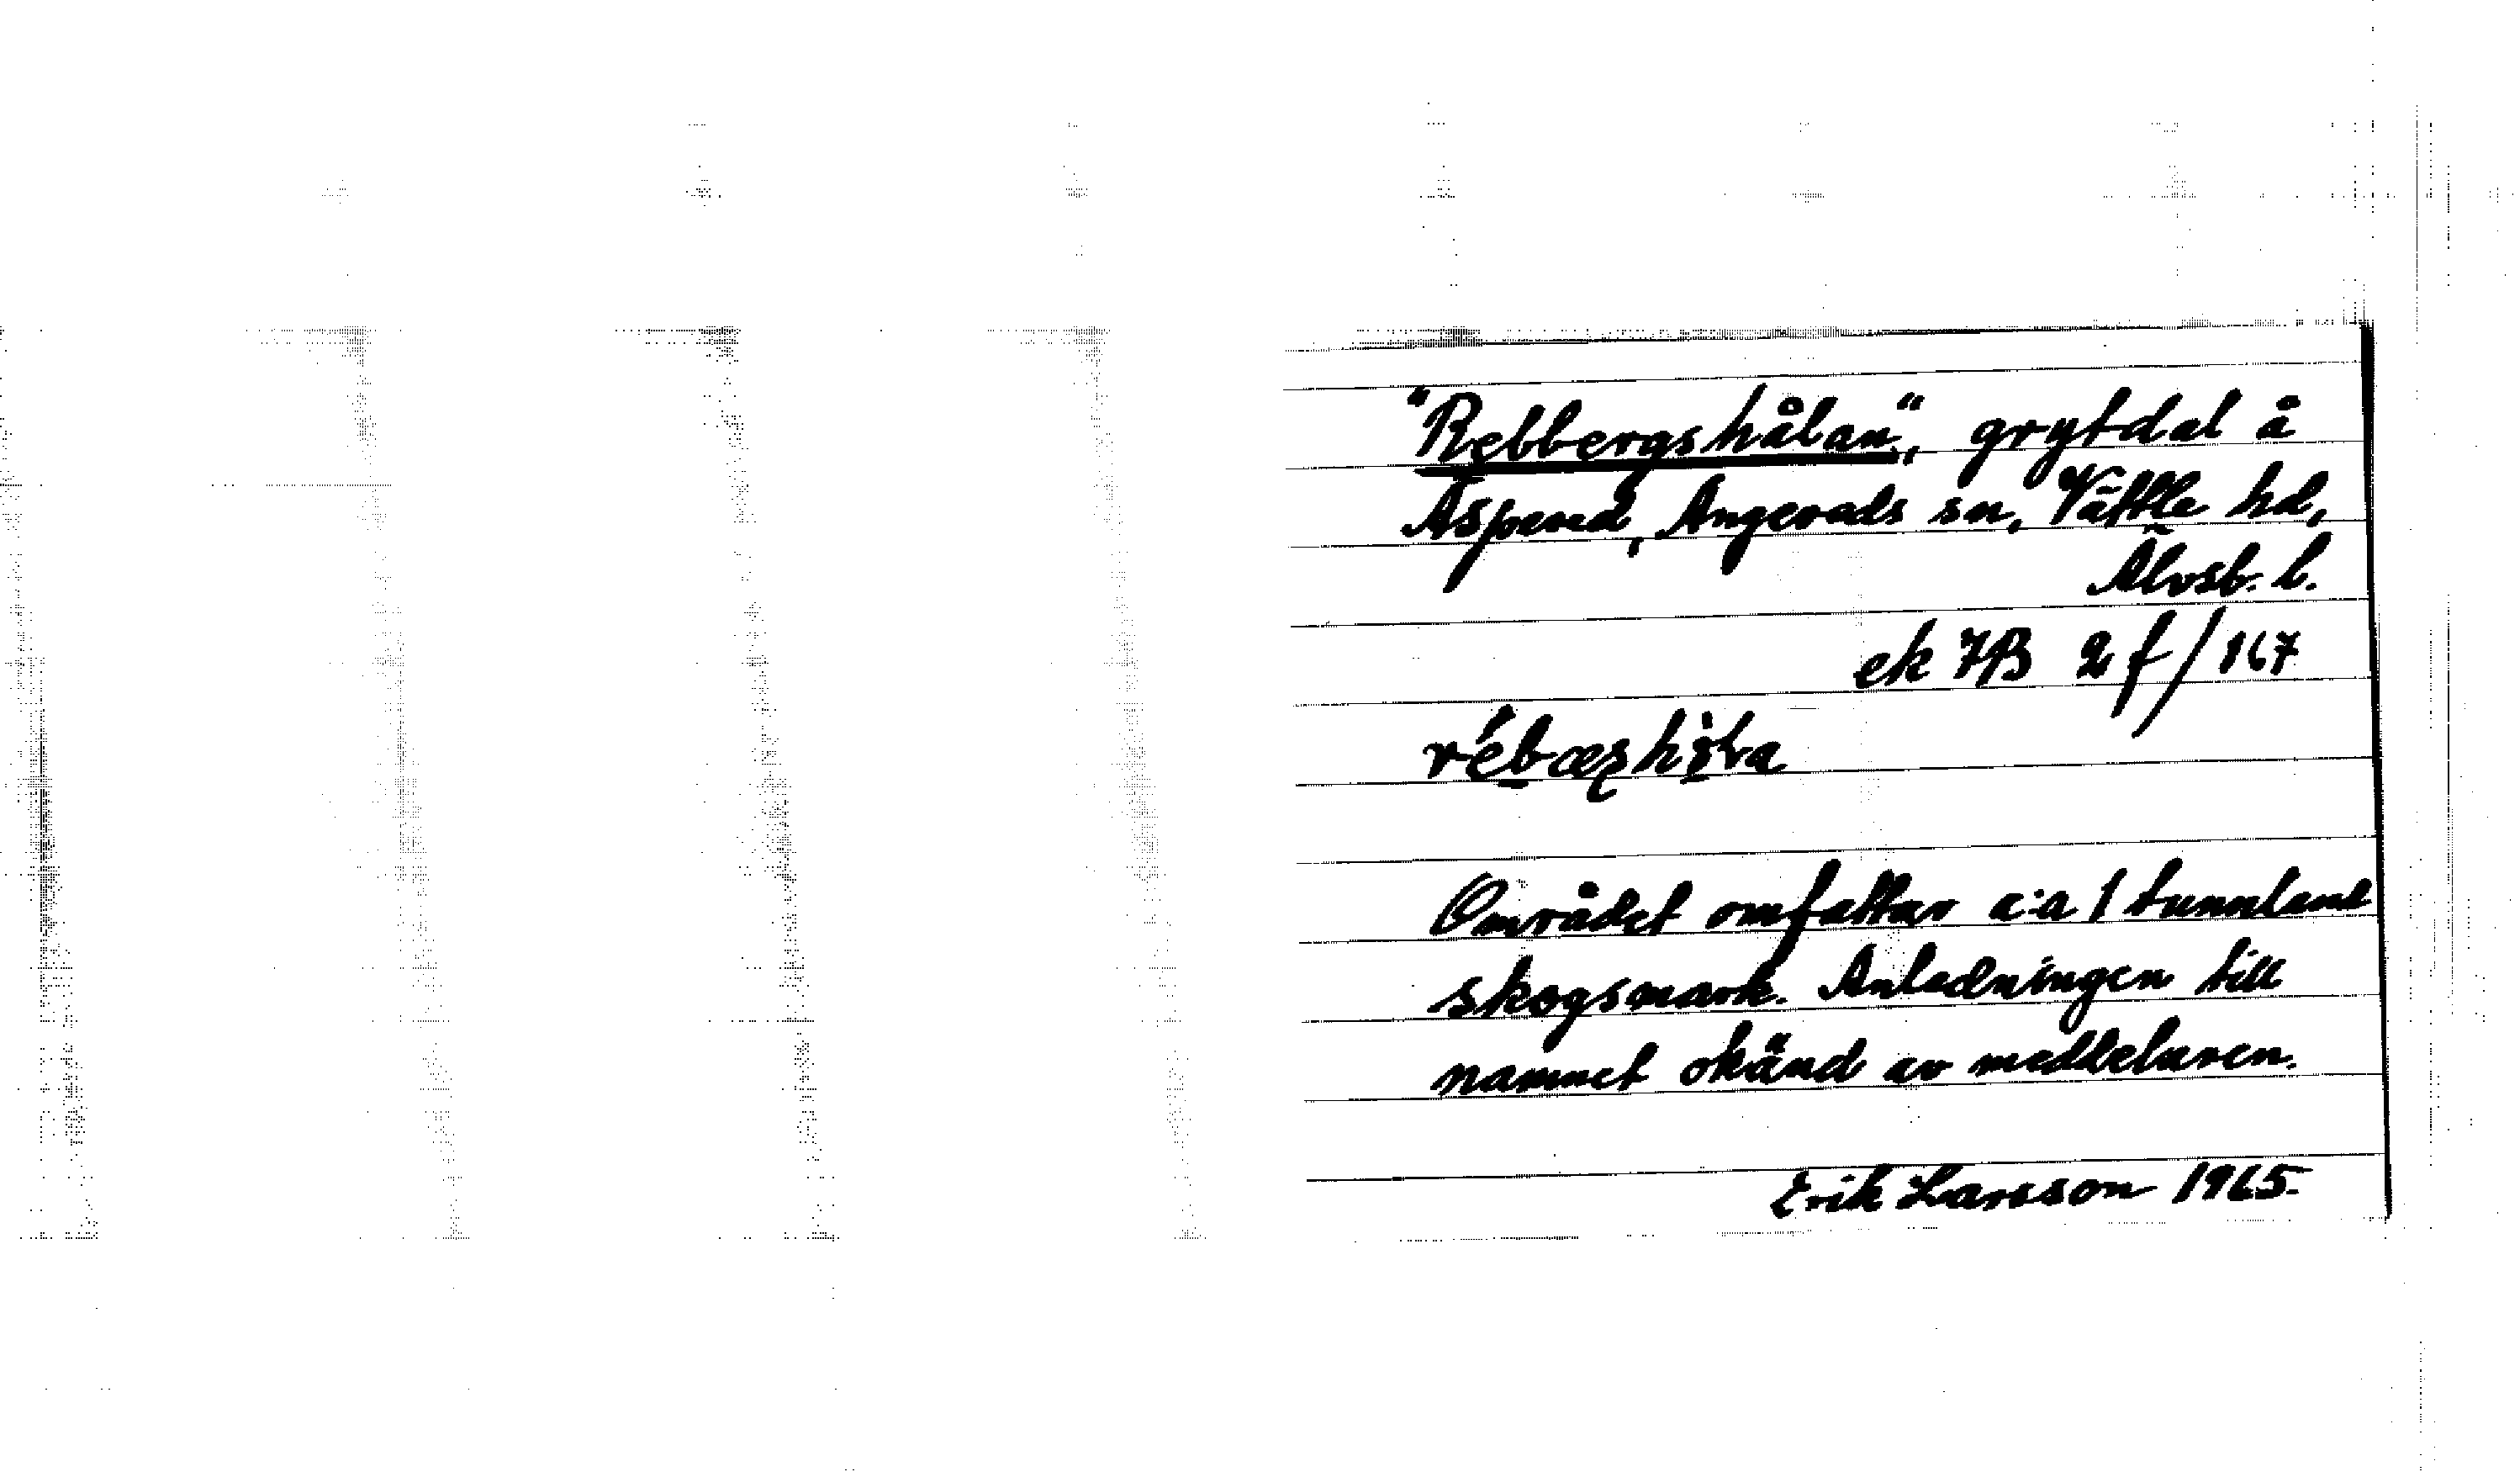 "Rebbergshålan", grytdal å
Aspered, Angereds sn, Vättle hd,
Älvsb. l.
ek 7B 2f/167
Området omfattar c:a 1 tunnland
skogsmark. Anledningen till
namnet okänd av meddelaren.
Erik Larsson 1965.